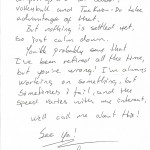 volleyball and Tucker-Do take
advantage of that.
But nothing is settled yet.
So just calm down.
You'll probably say that
I've been retired all the time,
but you're wrong! I'm always
working on something, but
sometimes I fail, and the
speed varies with me internet.
well call me about that!
See ya!